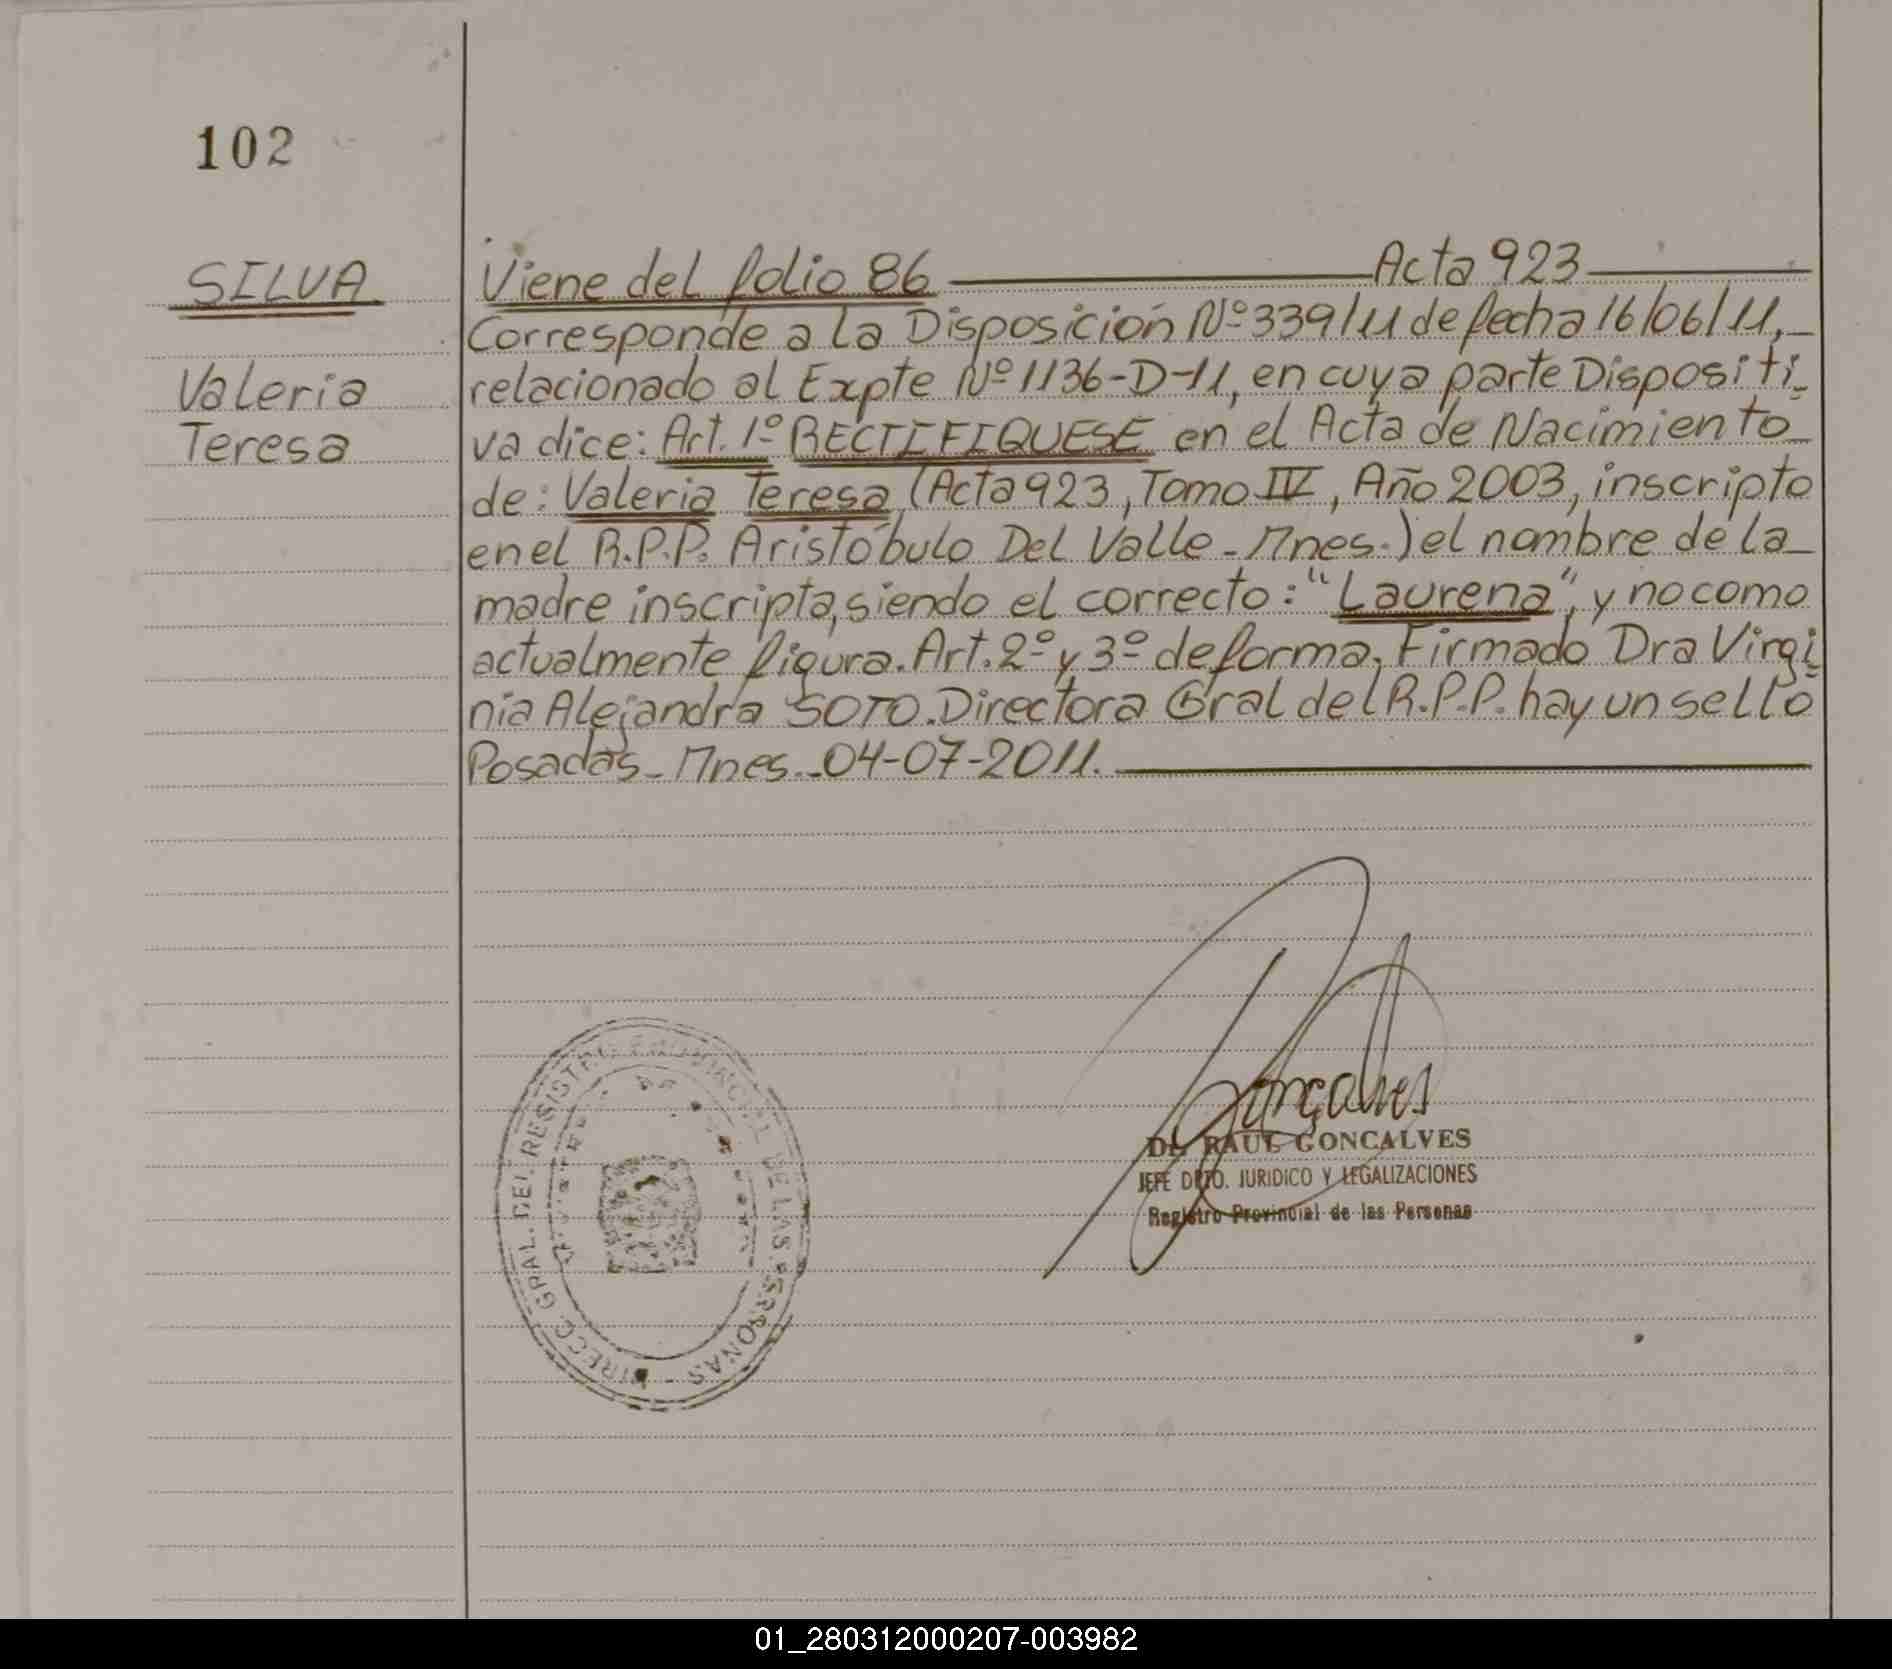 102
SILVA
Valeria
Teresa
Viene del folio 86 Acta 923
Corresponde a la Disposición Nº 339/11 de fecha 16/06/11,
relacionado al Expte Nº 1136-D-11, en cuya parte Dispositi-
va dice: Art. 1º RECTIFIQUESE en el Acta de Nacimiento
de: Valeria Teresa (Acta 923, Tomo IV, Año 2003, inscripto
en el R.P.P. Aristóbulo Del Valle - Mnes.) el nombre de la
madre inscripta, siendo el correcto: "Laurena", y no como
actualmente figura. Art. 2º y 3º de forma. Firmado Dra Virgi-
nia Alejandra SOTO. Directora Gral del R.P.P. hay un sello
Posadas - Mnes. - 04-07-2011.
DIRECC. GRAL. DEL REGISTRO PROVINCIAL DE LAS PERSONAS
Gonçalves
Dr. RAUL GONCALVES
JEFE DPTO. JURIDICO Y LEGALIZACIONES
Registro Provincial de las Personas
01_280312000207-003982